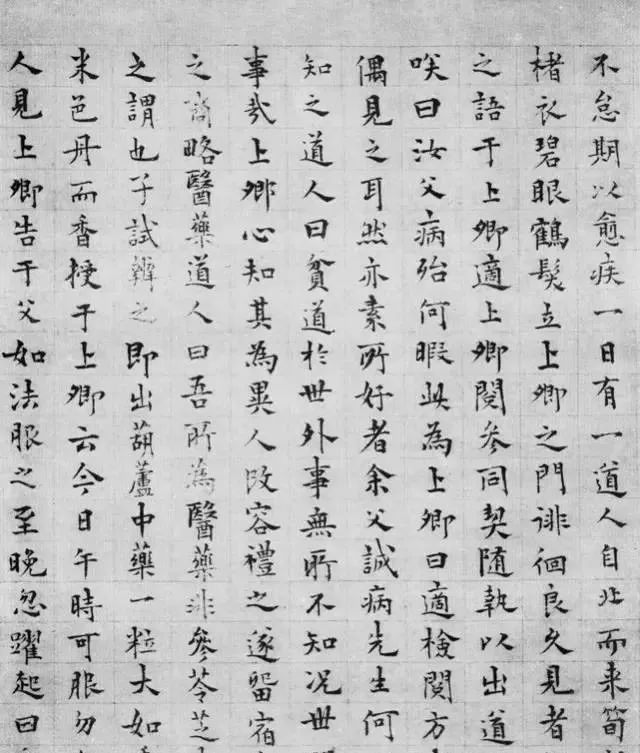 不怠期以愈疾一日有一道人自北而来筍
楮衣碧眼鶴髮立上卿之門誹徊良久見者
之語于上卿適上卿閱參同契随執以出道
咲曰汝父病殆何暇此為上卿曰適檢閱方
偶見之耳然亦素所好者余父誠病先生何
知之道人曰貧道於世外事無所不知况世
事㢤上卿心知其為異人改容禮之遂留宿
之啇略醫藥道人曰吾所為醫藥非參苓芝
之謂也子試辨之即出葫蘆中藥一粒大如
米色丹而香授于上卿云今日午時可服勿
人見上卿告于父如法服之至晚忽躍起曰